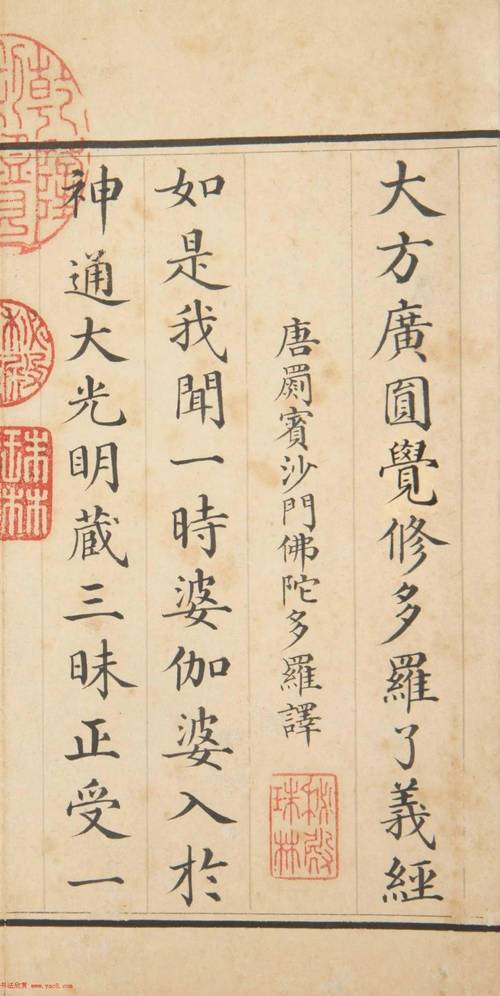 大方廣圓覺修多羅了義經
唐罽賓沙門佛陀多羅譯
如是我聞一時婆伽婆入於
神通大光明藏三昧正受一
秘殿珠林
乾隆
秘殿
珠林
书法欣赏 www.yac8.com